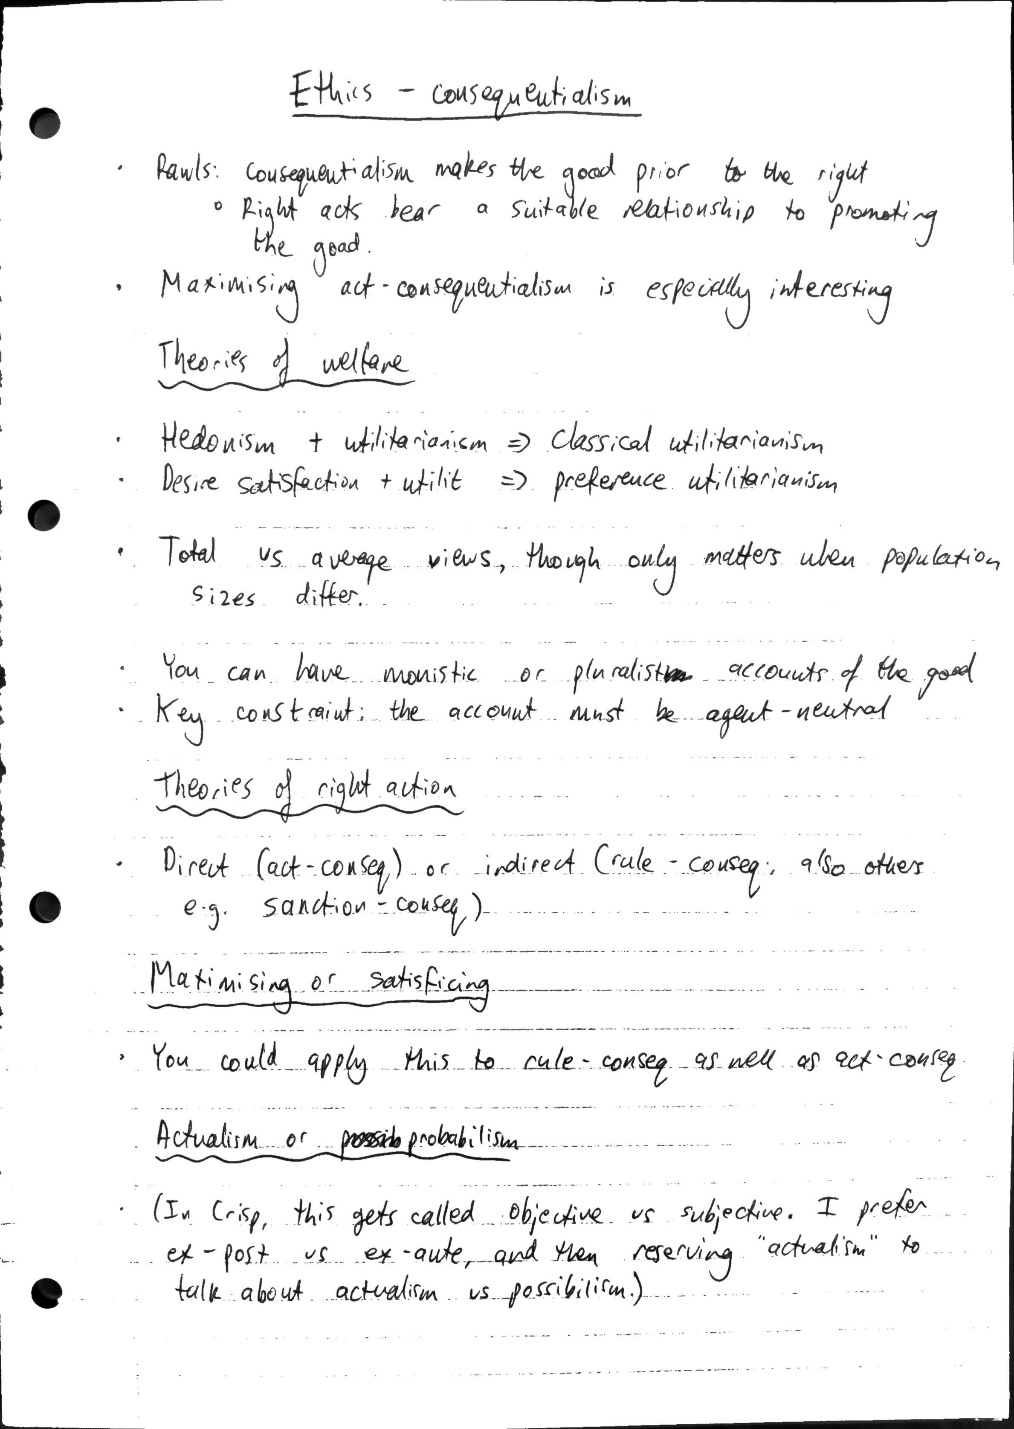 Ethics - consequentialism
· Rawls: consequentialism makes the good prior to the right
o Right acts bear a suitable relationship to promoting
the good.
· Maximising act-consequentialism is especially interesting
Theories of welfare
· Hedonism + utilitarianism => classical utilitarianism
· Desire satisfaction + utilit => preference utilitarianism
· Total vs average views, though only matters when population
sizes differ.
· You can have monistic or pluralist accounts of the good
· Key constraint: the account must be agent-neutral
Theories of right action
· Direct (act-conseq) or indirect (rule-conseq; also others
e.g. sanction-conseq)
Maximising or satisficing
· You could apply this to rule-conseq as well as act-conseq
Actualism or probabilism
· (In Crisp, this gets called objective vs subjective. I prefer
ex-post vs ex-ante, and then reserving "actualism" to
talk about actualism vs possibilism.)